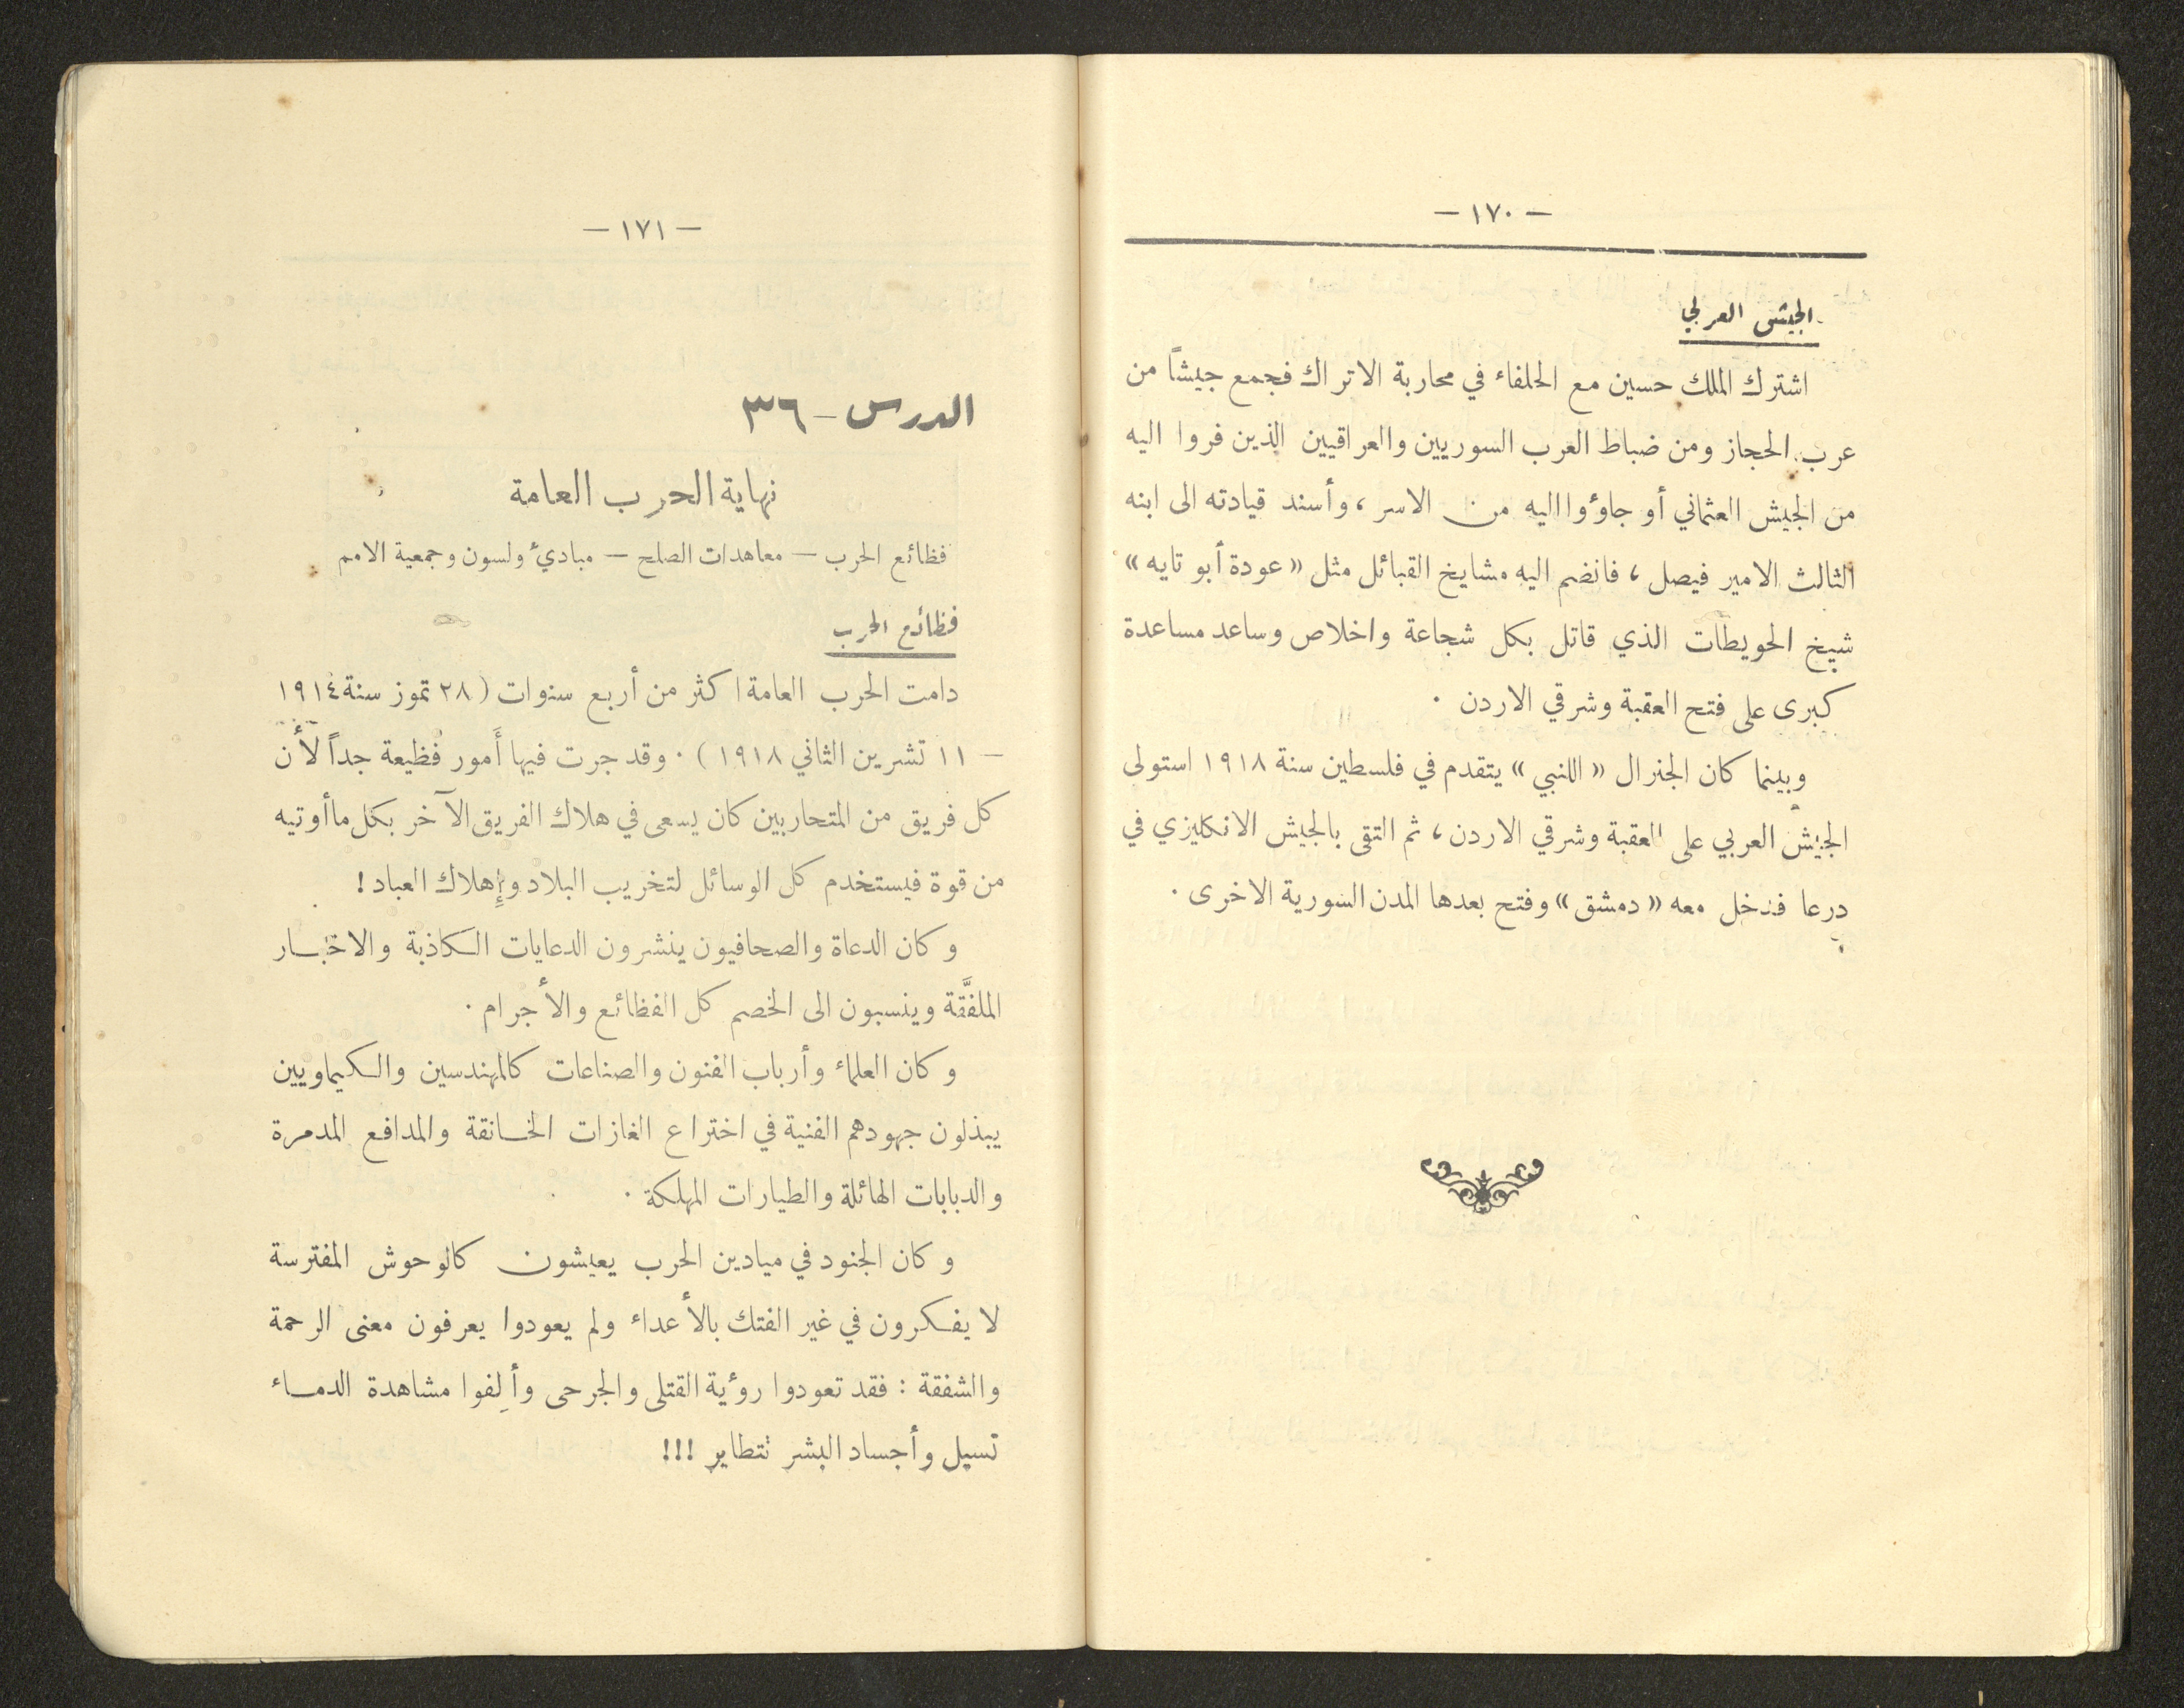 — ١٧٠ —
الجيش العربي
اشترك الملك حسين مع الحلفاء في محاربة الاتراك فجمع جيشاً من
عرب الحجاز ومن ضباط العرب السوريين والعراقيين الذين فروا اليه
من الجيش العثماني أو جاؤوا اليه من الاسر ، وأسند قيادته الى ابنه
الثالث الامير فيصل ، فانضم اليه مشايخ القبائل مثل « عودة أبو تايه »
شيخ الحويطات الذي قاتل بكل شجاعة واخلاص وساعد مساعدة
كبرى على فتح العقبة وشرقي الاردن .
وبينما كان الجنرال « اللنبي » يتقدم في فلسطين سنة ١٩١٨ استولى
الجيش العربي على العقبة وشرقي الاردن ، ثم التقى بالجيش الانكليزي في
درعا فدخل معه « دمشق » وفتح بعدها المدن السورية الاخرى .
— ١٧١ —
الدرس – ٣٦
نهاية الحرب العامة
فظائع الحرب — معاهدات الصلح — مبادئ ولسون وجمعية الامم
فظائع الحرب
دامت الحرب العامة اكثر من أربع سنوات ( ٢٨ تموز سنة ١٩١٤
— ١١ تشرين الثاني ١٩١٨ ) . وقد جرت فيها أَمور فظيعة جداً لأن
كل فريق من المتحاربين كان يسعى في هلاك الفريق الآخر بكل ما أوتيه
من قوة فيستخدم كل الوسائل لتخريب البلاد وإِهلاك العباد !
وكان الدعاة والصحافيون ينشرون الدعايات الكاذبة والاخبار
الملفَّقة وينسبون الى الخصم كل الفظائع والأجرام .
وكان العلماء وأرباب الفنون والصناعات كالمهندسين والكيماويين
يبذلون جهودهم الفنية في اختراع الغازات الخانقة والمدافع المدمرة
والدبابات الهائلة والطيارات المهلكة .
وكان الجنود في ميادين الحرب يعيشون كالوحوش المفترسة
لا يفكرون في غير الفتك بالأعداء ولم يعودوا يعرفون معنى الرحمة
والشفقة : فقد تعودوا رؤية القتلى والجرحى وألِفوا مشاهدة الدماء
تسيل وأجساد البشر تتطاير !!!